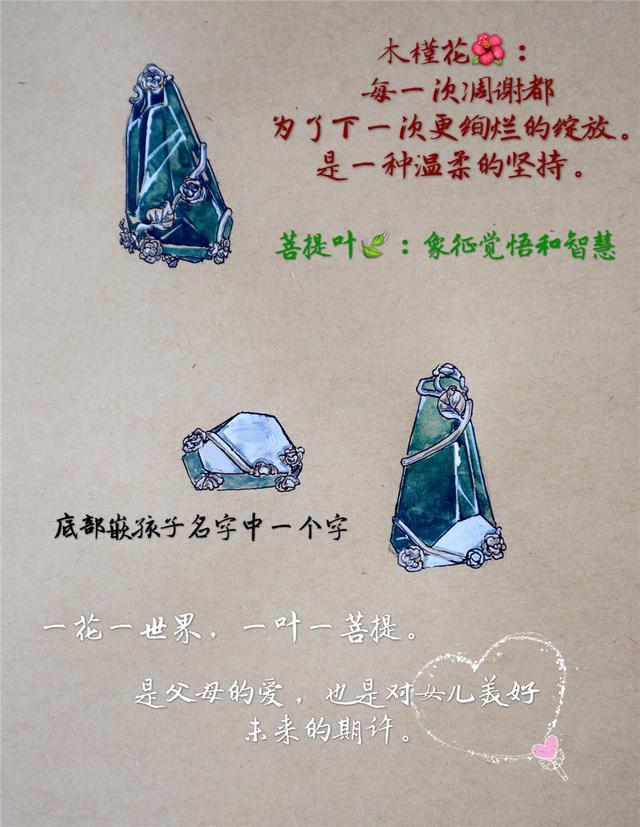 木槿花🌺：
每一次凋谢都
为了下一次更绚烂的绽放。
是一种温柔的坚持。
菩提叶🍃：象征觉悟和智慧
底部嵌孩子名字中一个字
一花一世界，一叶一菩提。
是父母的爱，也是对女儿美好
未来的期许。